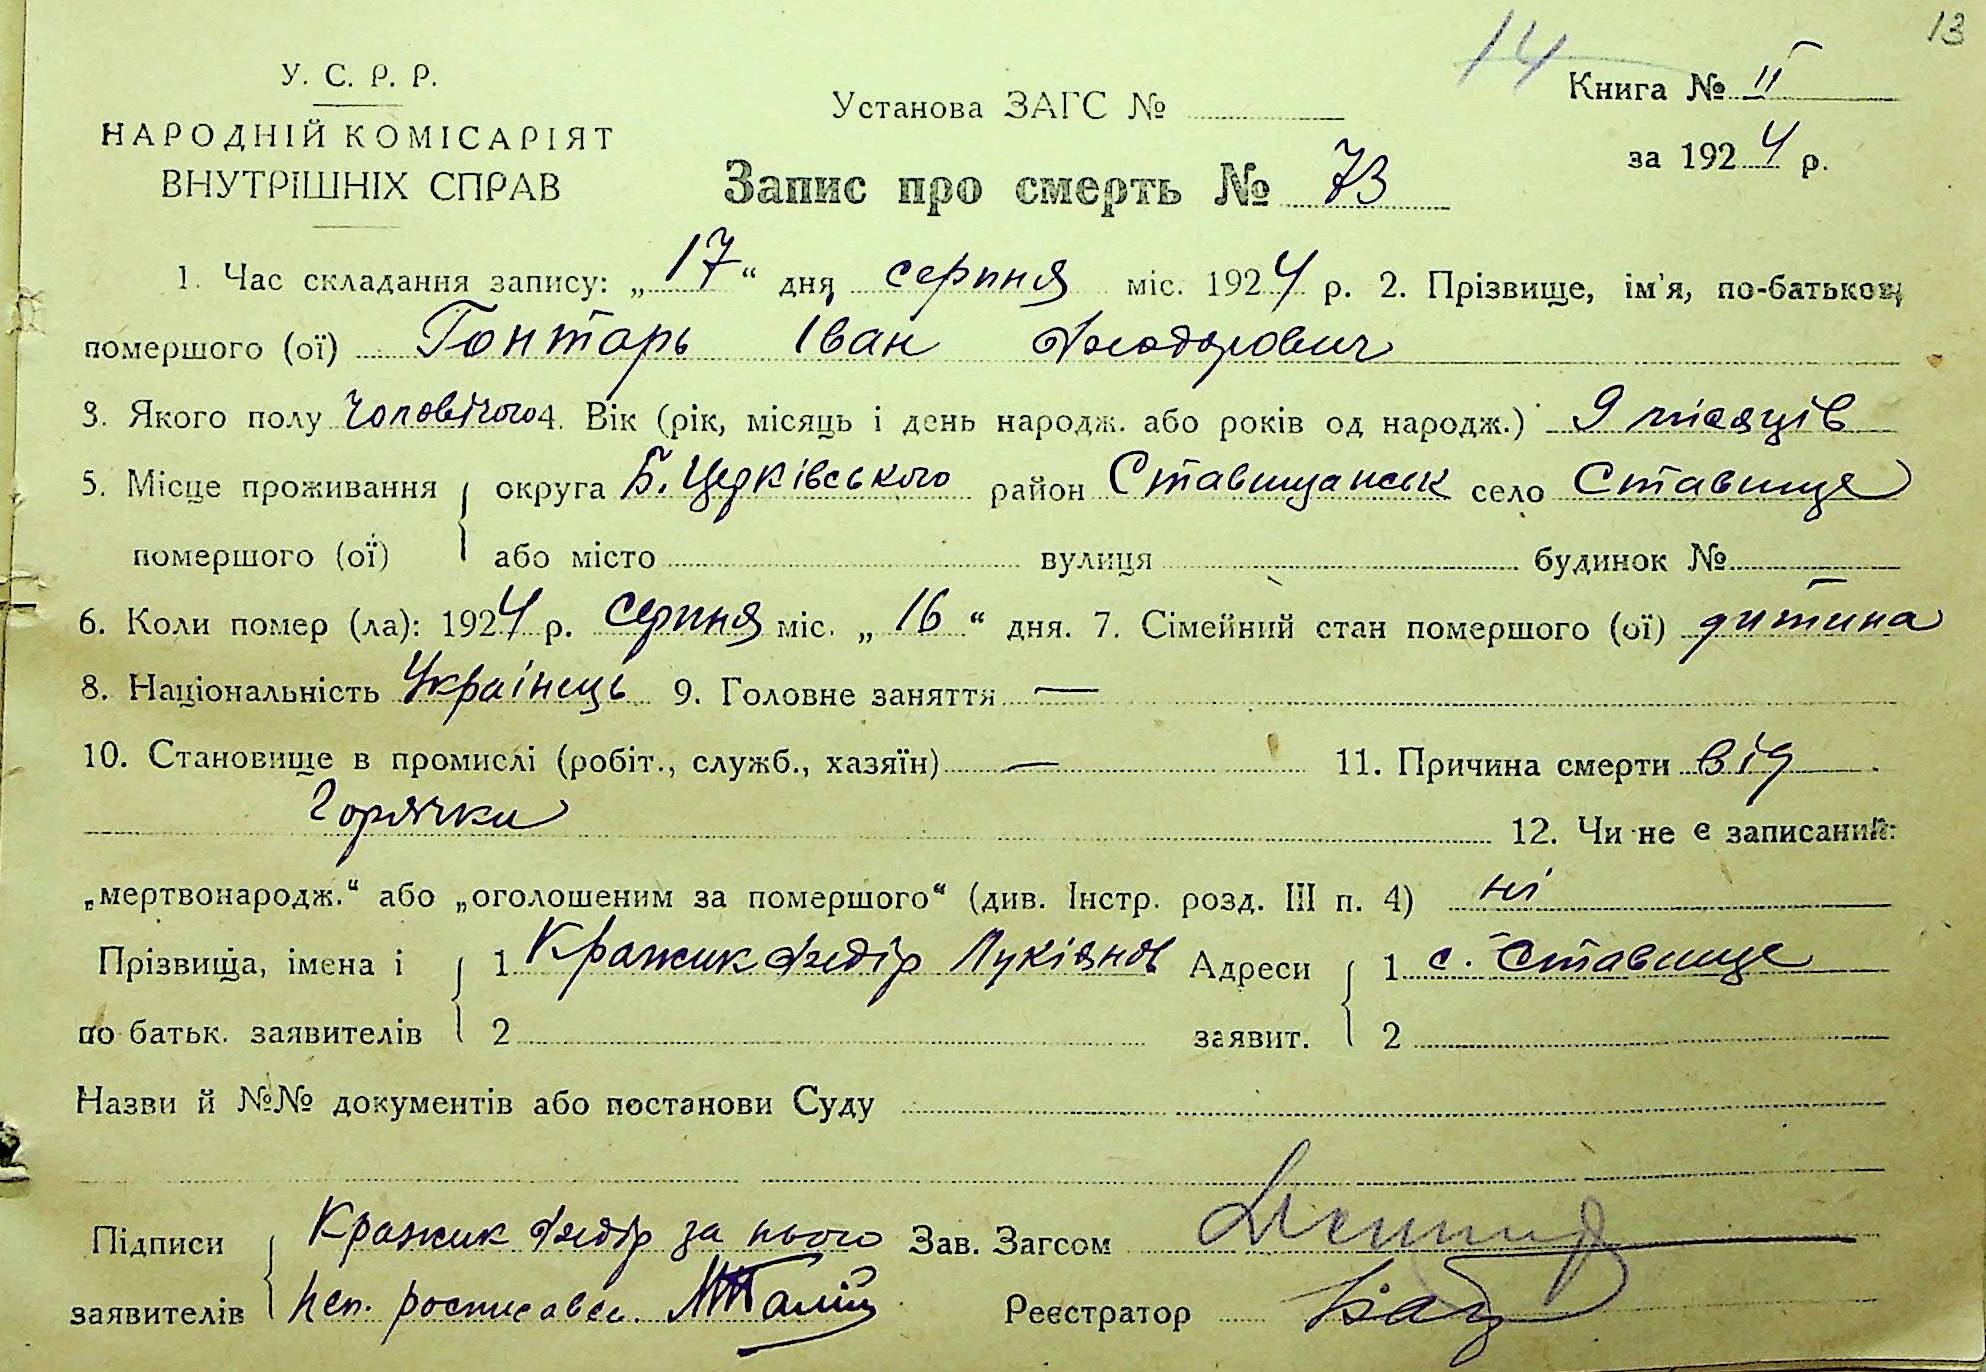 13
14
У. С. Р. Р.
НАРОДНІЙ КОМІСАРІЯТ
ВНУТРІШНІХ СПРАВ
Установа ЗАГС №
Книга № II
за 1924 р.
Запис про смерть № 73
1. Час складання запису: „17“ дня серпня міс. 1924 р. 2. Прізвище, ім'я, по-батькові
помершого (ої) Гонтарь Іван Феодорович
3. Якого полу чоловічого 4. Вік (рік, місяць і день народж. або років од народж.) 9 місяців
5. Місце проживання округа Б. Церківського район Ставищанськ село Ставище
помершого (ої) або місто вулиця будинок №
6. Коли помер (ла): 1924 р. серпня міс. „16“ дня. 7. Сімейний стан помершого (ої) дитина
8. Національність Українець 9. Головне заняття —
10. Становище в промислі (робіт., служб., хазяїн) — 11. Причина смерти від
горячки 12. Чи не є записаний:
„мертвонародж.“ або „оголошеним за помершого“ (див. Інстр. розд. III п. 4) ні
Прізвища, імена і 1 Кражик Федір Лукіянов Адреси 1 с. Ставище
по батьк. заявителів 2 заявит. 2
Назви й №№ документів або постанови Суду
Підписи Кражик Федір за нього Зав. Загсом
заявителів неп. росписався. Реєстратор